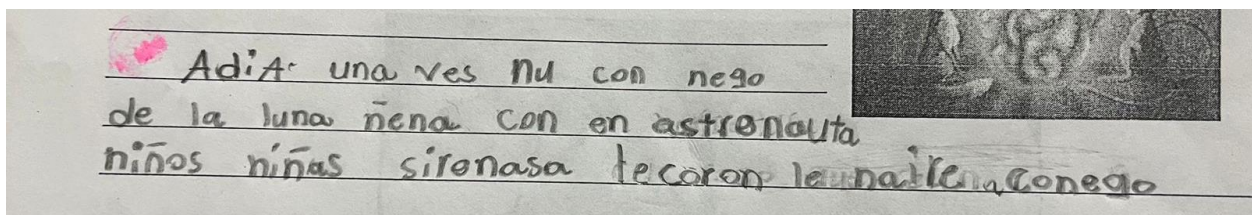 AdiA. una ves nu con nego
de la luna ñena con en astronauta
niños niñas sironasa tecoron le naire conego